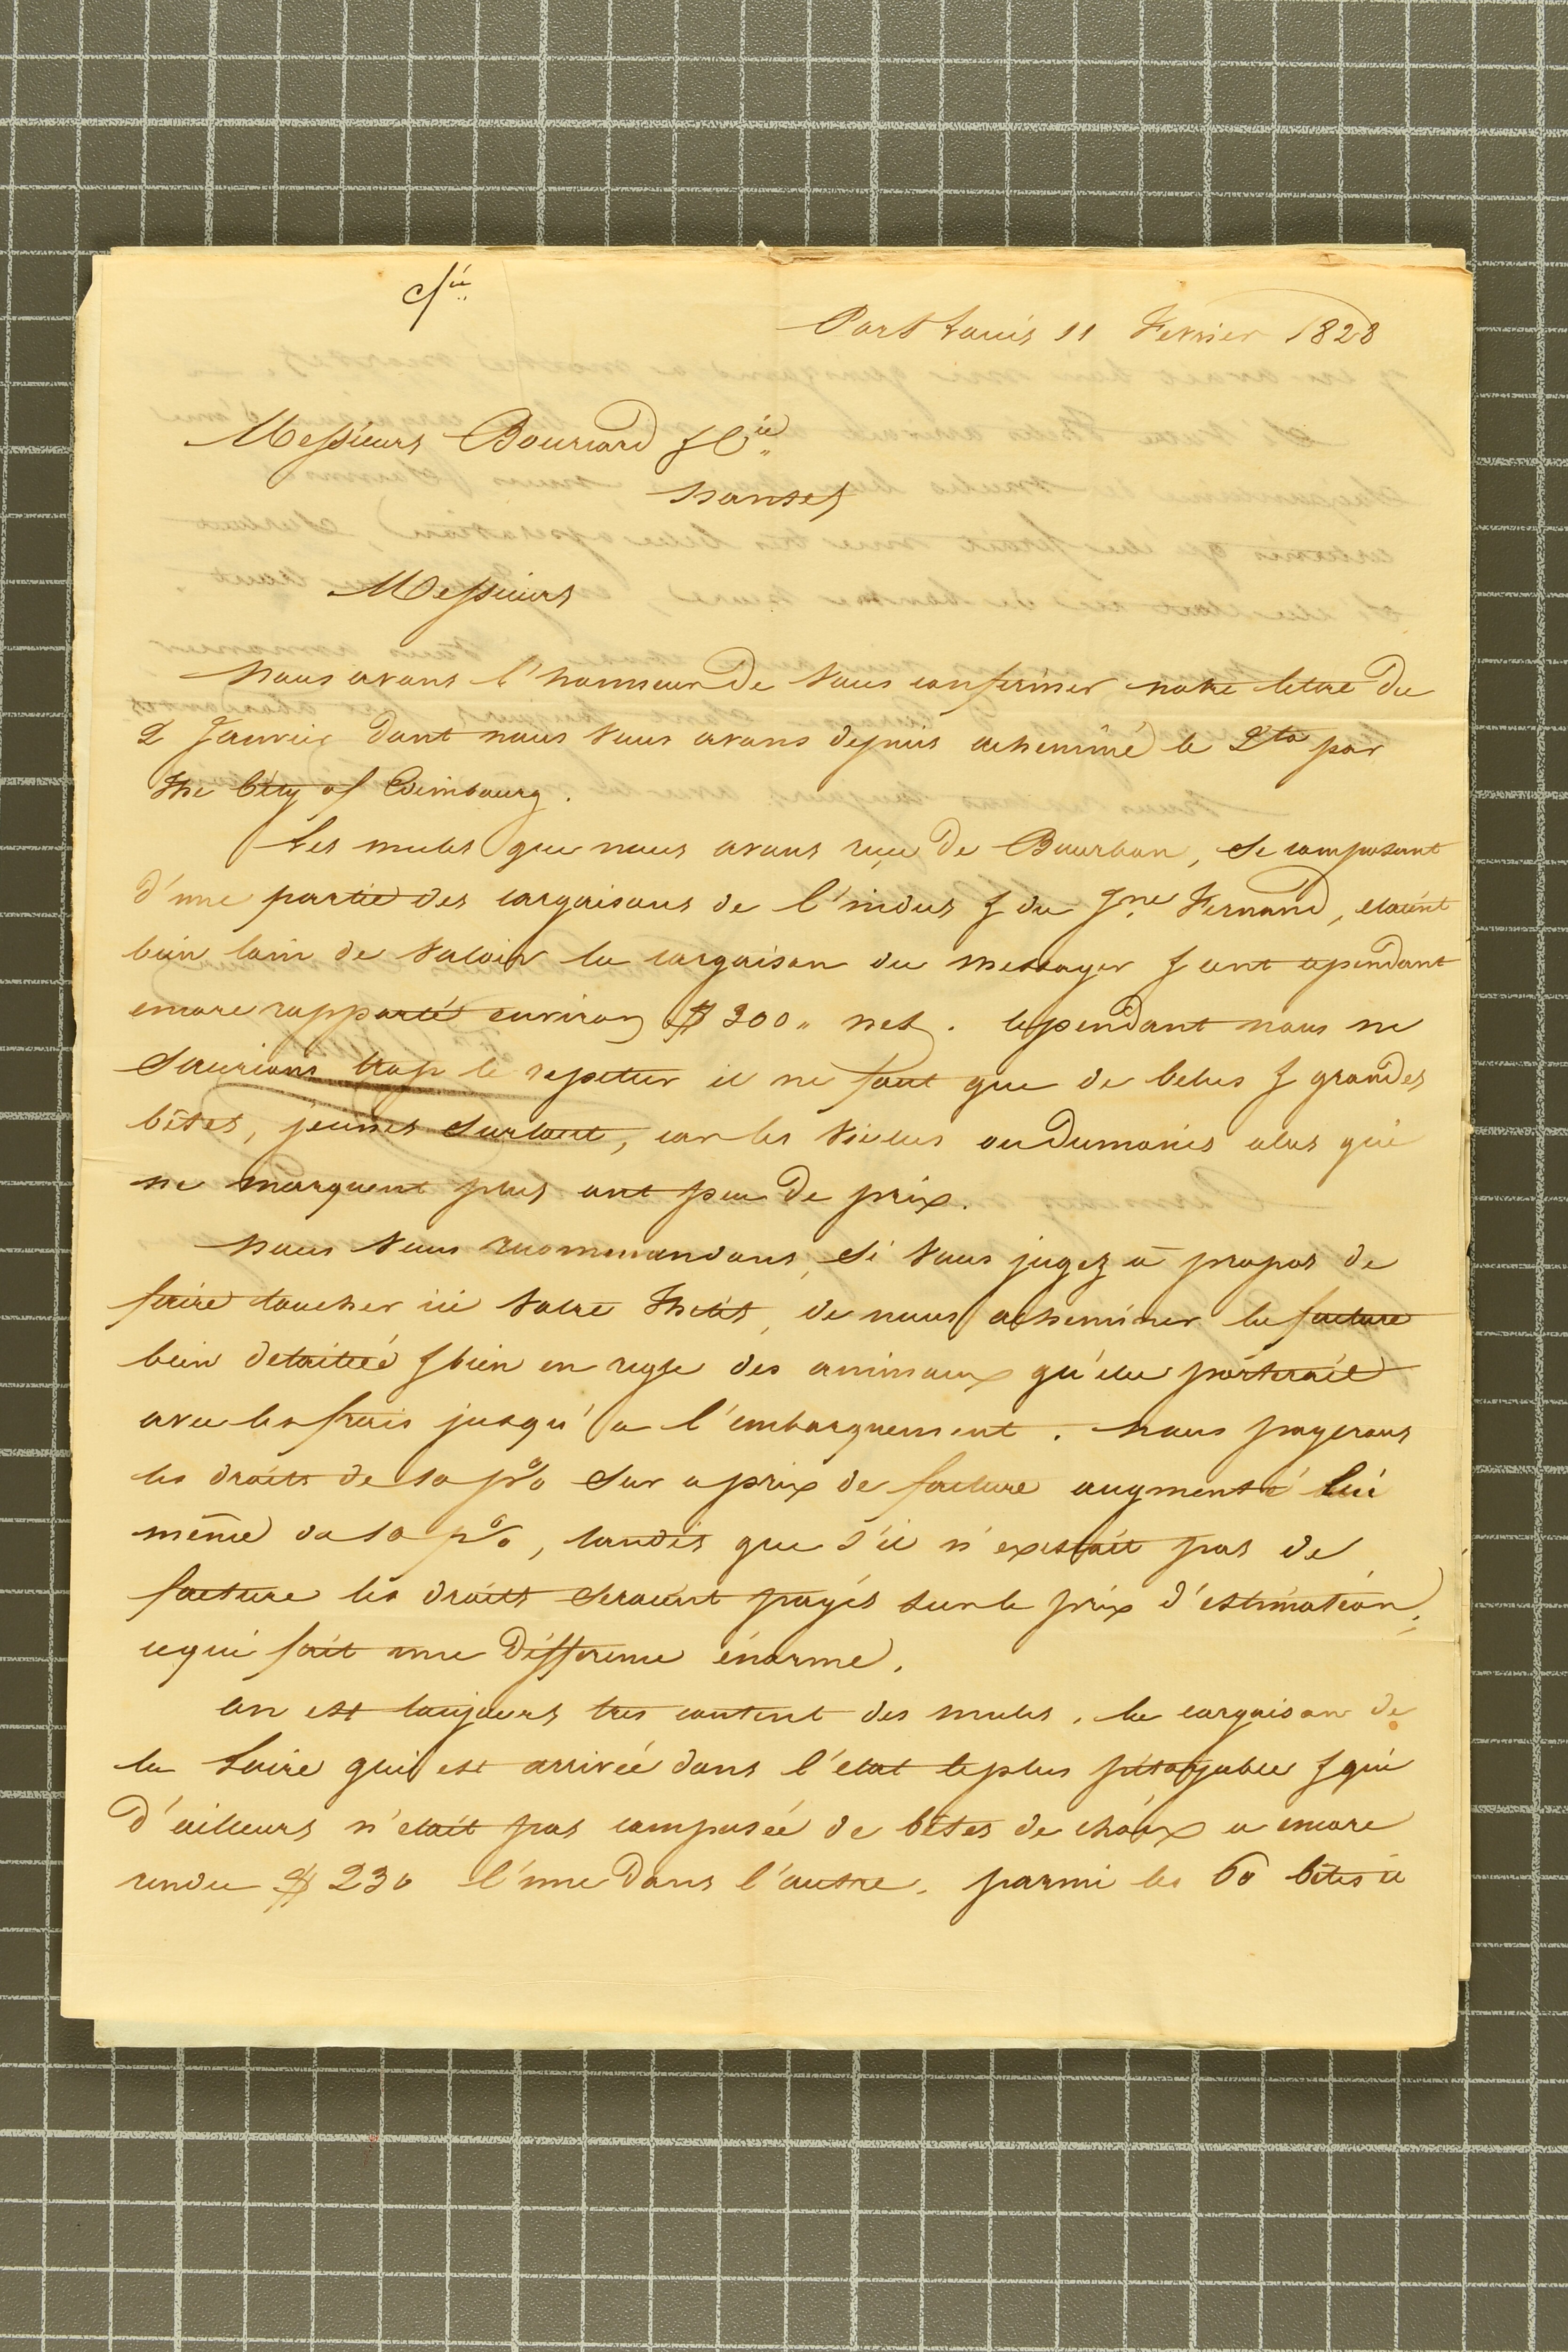 Cie
Port Louis 11 Fevrier 1828
Messieurs Bourcard & Cie
Nantes
Messieurs
Nous avons l'honneur de vous confirmer notre lettre du
2 Janvier dont nous vous avons depuis acheminé le Dta par
the City of Edimbourg.
Les mules que nous avons reçu de Bourbon, se composant
d'une partie des cargaisons de l'indus & du Jne Fernand, etaient
bien loin de valoir la cargaison du Messager & ont cependant
encore rapporté environ $ 200 " net. Cependant nous ne
saurions trop le repeter il ne faut que de belles & grandes
bêtes, jeunes surtout, car les vieilles ou du moins celles qui
ne marquent plus ont peu de prix.
Nous vous recommandons, si vous jugez a propos de
faire toucher ici votre Thetis, de nous acheminer la facture
bien detaillée & bien en regle des animaux qu'elle porterait
avec les frais jusqu'a l'embarquement. Nous payerons
les droits de 10 p% sur ce prix de facture augmenté lui
même de 10 p%, tandis que s'il n'existait pas de
facture les droits seraient payés sur le prix d'estimation,
ce qui fait une différence énorme.
On est toujours tres content des mules. la cargaison de
la Loire qui est arrivée dans l'état le plus pitoyable & qui
d'ailleurs n'etait pas composée de bêtes de choix a encore
rendu $ 230 l'une dans l'autre. parmi les 60 bêtes il